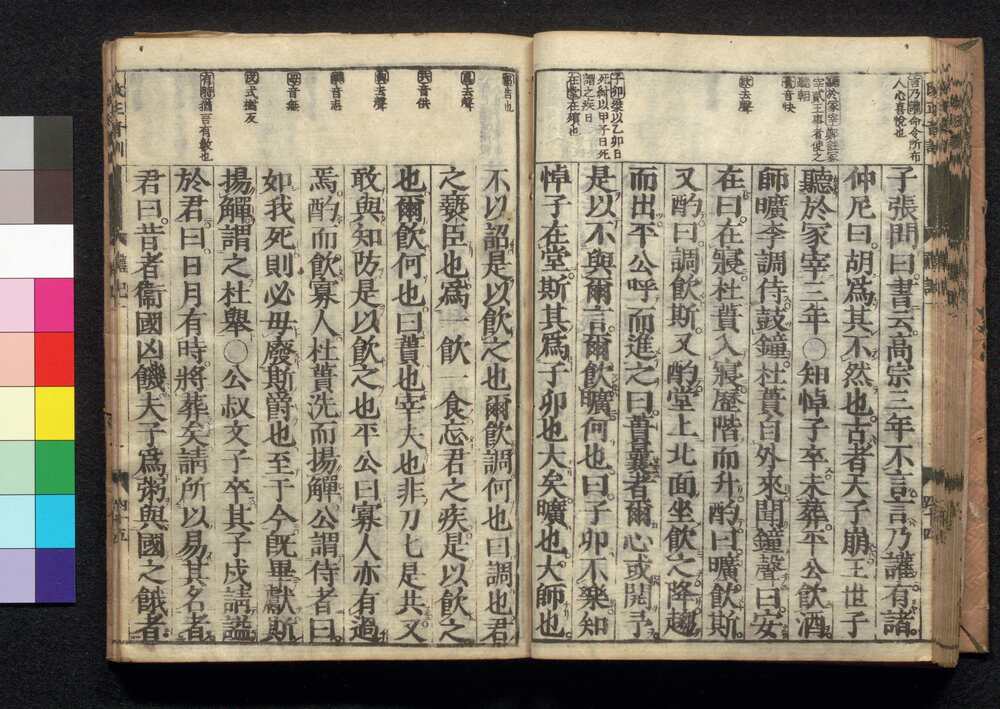 言乃讙命令所布
人心喜悅也
聽於冢宰鄭註冢
宰貳王事者使之
聽朝
蕢音快
飲去聲
子卯桀以乙卯日
死紂以甲子日死
謂之疾日
在堂在殯也
子張問曰書云高宗三年不言言乃讙有諸
仲尼曰胡爲其不然也古者天子崩王世子
聽於冢宰三年○知悼子卒未葬平公飲酒
師曠李調侍鼓鐘杜蕢自外來聞鐘聲曰安
在曰在寢杜蕢入寢歷階而升酌曰曠飲斯
又酌曰調飲斯又酌堂上北面坐飲之降趨
而出平公呼而進之曰蕢曩者爾心或開予
是以不與爾言爾飲曠何也曰子卯不樂知
悼子在堂斯其爲子卯也大矣曠也大師也
詔告也
爲去聲
共音供
與去聲
音無
有時猶言有數也
不以詔是以飲之也爾飲調何也曰調也君
之褻臣也爲一飲一食忘君之疾是以飲之
也爾飲何也曰蕢也宰夫也非刀匕是共又
敢與知防是以飲之也平公曰寡人亦有過
焉酌而飲寡人杜蕢洗而揚觶公謂侍者曰
如我死則必毋廢斯爵也至于今旣畢獻斯
揚觶謂之杜舉○公叔文子卒其子戍請謚
於君曰日月有時將葬矣請所以易其名者
君曰昔者衞國凶饑夫子爲粥與國之餓者